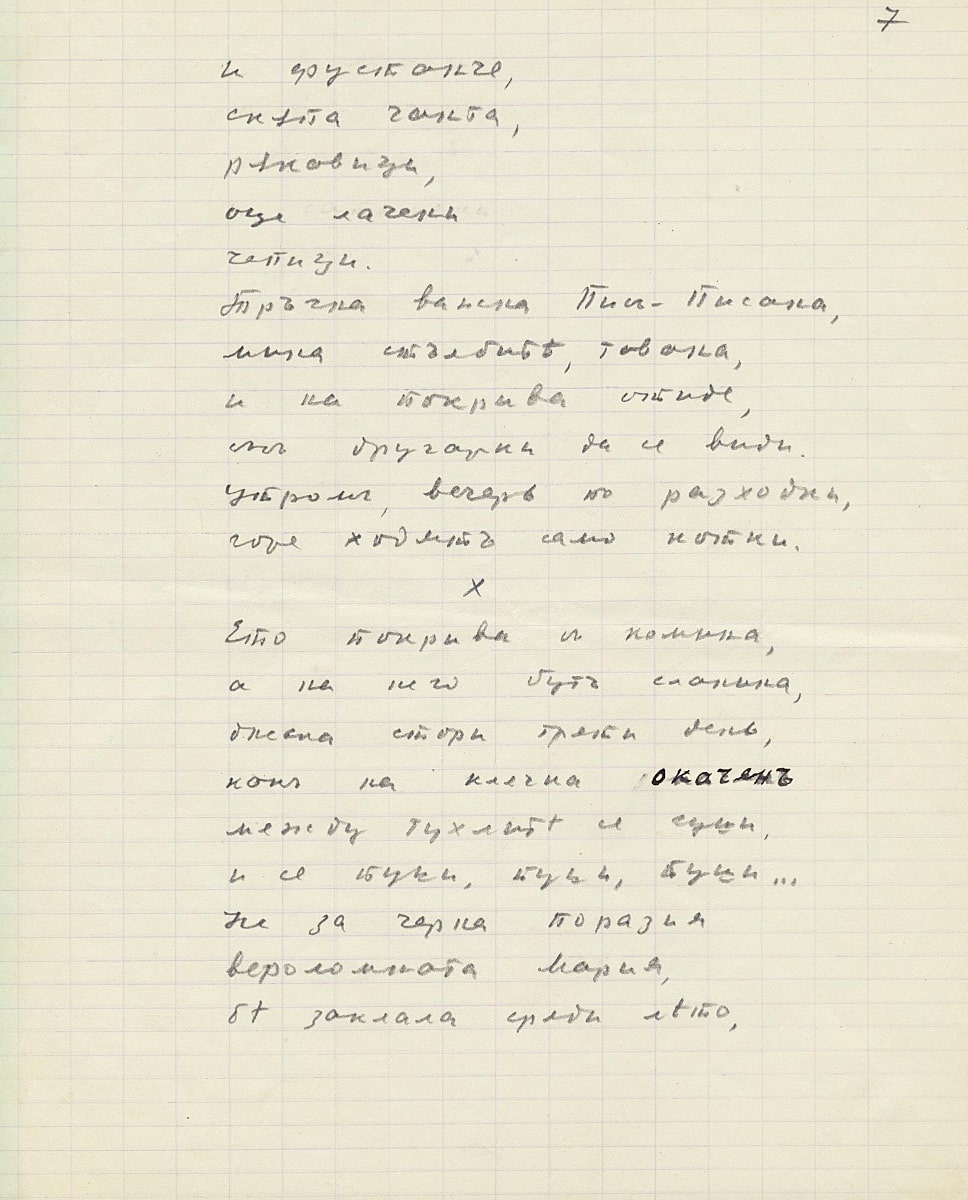 7
и фустанче,
скѫпа чанта,
рѫкавици,
още лачени
чепици.
Тръгна ваксна Пис-Писана,
мина стълбитѣ, тавана,
и на покрива отиде,
съ другарки да се види.
Утромъ, вечерь по разходки,
горе ходятъ само котки.
х
Ето покрива съ комина,
а на него бутъ сланина,
днеска стори трети день,
какъ на клечка окаченъ
между тухлитѣ се суши,
и се пуши, пуши, пуши...
Че за черна поразия
вероломната Мария,
бѣ заклала среди лѣто,